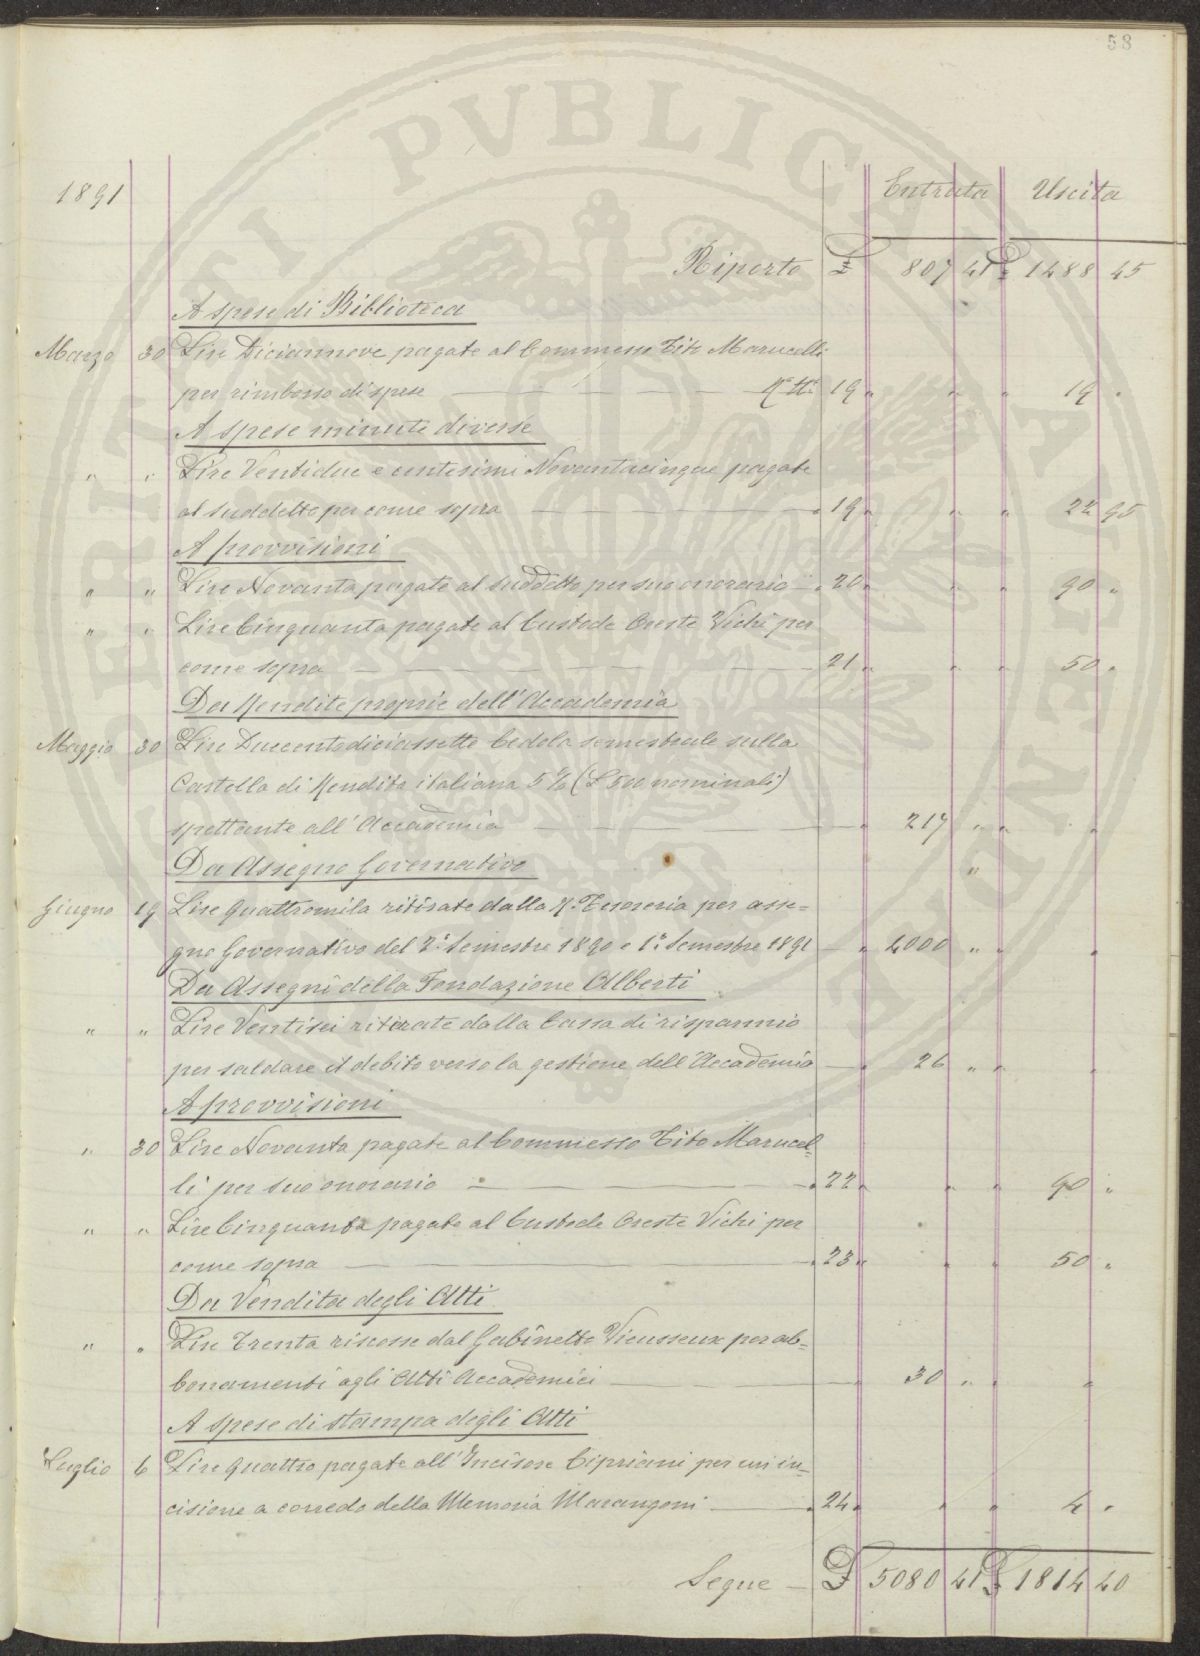 58
1891 Entrata Uscita
Riporto £ 807 41 £ 1488 45
A spese di Biblioteca
Marzo 30 Lire Diciannove pagate al Commesso Tito Marucelli
per rimborso di spese 19 " " " 19 "
A spese minute diverse
" " Lire Ventidue e centesimi Novantacinque pagate
al suddetto per come sopra " 19 " " " 22 95
A provvisioni
" " Lire Novanta pagate al suddetto per suo onorario " 20 " " " 90 "
" " Lire Cinquanta pagate al Custode Oreste Vichi per
come sopra 21 " " " 50 "
Da Rendite proprie dell'Accademia
Maggio 30 Lire Duecentodiciassette Cedola semestrale sulla
Cartella di Rendita italiana 5% (£ 500 nominali)
spettante all'Accademia " 217 " " "
Da Assegno Governativo "
Giugno 19 Lire Quattromila ritirate dalla R. Tesoreria per asse=
gno Governativo del 2° Semestre 1890 e 1° Semestre 1891 " 4000 " " "
Da Assegni della Fondazione Alberti
" " Lire Ventisei ritirate dalla Cassa di risparmio
per saldare il debito verso la gestione dell'Accademia " 26 " " "
A provvisioni
" 30 Lire Novanta pagate al Commesso Tito Marucel=
li per suo onorario " 22 " " " 90 "
" " Lire Cinquanta pagate al Custode Oreste Vichi per
come sopra " 23 " " " 50 "
Da Vendita degli Atti
" " Lire Trenta riscosse dal Gabinetto Vieusseux per ab=
bonamenti agli Atti Accademici " 30 " " "
A spese di stampa degli Atti
Luglio 6 Lire Quattro pagate all'Incisore Cipriani per un'in=
cisione a corredo della Memoria Marangoni " 24 " " " 4 "
Segue £ 5080 41 £ 1814 40